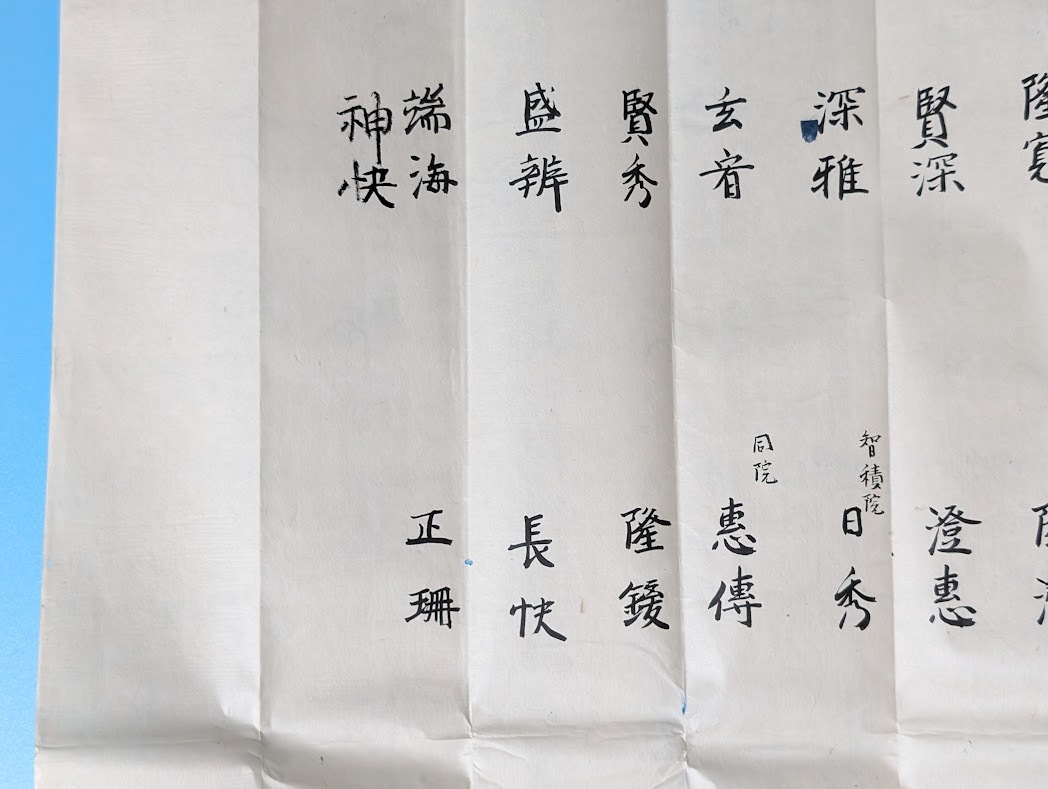 賢深
澄惠
深雅
智積院
日秀
玄音
同院
惠傳
賢秀
隆鍐
盛辨
長快
端海
正珊
神快